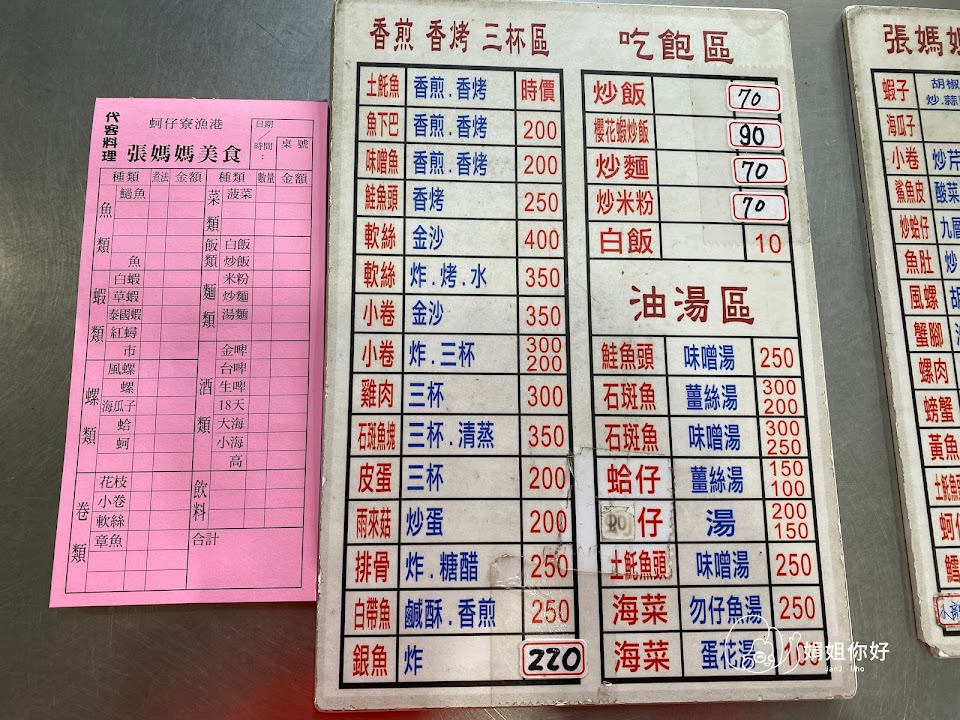 代客料理
蚵仔寮漁港
張媽媽美食
日期
時間:
桌號
種類 煮法 金額 種類 數量 金額
魚類
魚
蝦類
白蝦
草蝦
泰國蝦
紅蟳
市
螺類
風螺
螺
海瓜子
蛤
蚵
卷類
花枝
小卷
軟絲
章魚
菜類
菠菜
飯類
白飯
炒飯
麵類
米粉
炒麵
湯麵
酒類
金啤
台啤
生啤
18天
大海
小海
高
飲料
合計
香煎 香烤 三杯區
土魠魚 香煎.香烤 時價
魚下巴 香煎.香烤 200
味噌魚 香煎.香烤 200
鮭魚頭 香烤 250
軟絲 金沙 400
軟絲 炸.烤.水 350
小卷 金沙 350
小卷 炸.三杯 300 200
雞肉 三杯 300
石斑魚塊 三杯.清蒸 350
皮蛋 三杯 200
雨來菇 炒蛋 200
排骨 炸.糖醋 250
白帶魚 鹹酥.香煎 250
銀魚 炸 220
吃飽區
炒飯 70
櫻花蝦炒飯 90
炒麵 70
炒米粉 70
白飯 10
油湯區
鮭魚頭 味噌湯 250
石斑魚 薑絲湯 300 200
石斑魚 味噌湯 300 250
蛤仔 薑絲湯 150 100
仔 湯 200 150
土魠魚頭 味噌湯 250
海菜 勿仔魚湯 250
海菜 蛋花湯 100
張媽媽
蝦子 胡椒
炒.蒜
海瓜子
小卷 炒芹
鯊魚皮 酸菜
炒蛤仔 九層
魚肚 炒
風螺 胡
蟹腳
螺肉
螃蟹
黃魚
土魠魚
蚵仔
鱈
娟姐你好